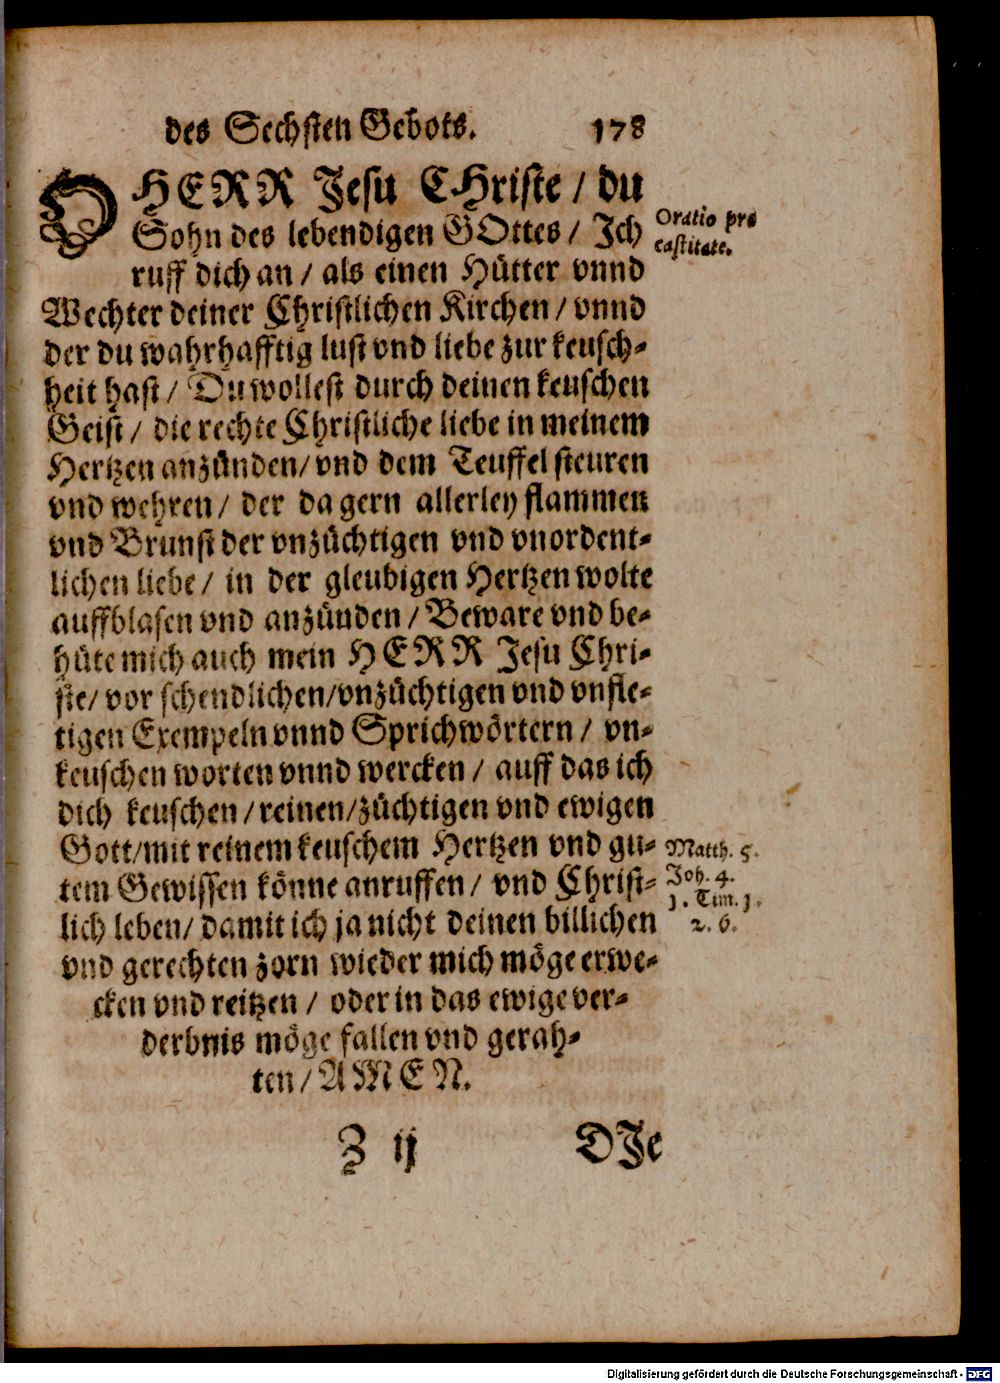 des Sechsten Gebots. 178
O HERR Jesu CHriste / du
Sohn des lebendigen GOttes / Jch
ruff dich an / als einen Hütter vnnd
Wechter deiner Christlichen Kirchen / vnnd
der du wahrhafftig lust vnd liebe zur keusch-
heit hast / Du wollest durch deinen keuschen
Geist / die rechte Christliche liebe in meinem
Hertzen anzünden / vnd dem Teuffel steuren
vnd wehren / der da gern allerley flammen
vnd Brunst der vnzüchtigen vnd vnordent-
lichen liebe / in der gleubigen Hertzen wolte
auffblasen vnd anzünden / Beware vnd be-
hüte mich auch mein HERR Jesu Chri-
ste / vor schendlichen / vnzüchtigen vnd vnfle-
tigen Exempeln vnnd Sprichwörtern / vn-
keuschen worten vnnd wercken / auff das ich
dich keuschen / reinen / züchtigen vnd ewigen
Gott / mit reinem keuschem Hertzen vnd gu-
tem Gewissen könne anruffen / vnd Christ-
lich leben / damit ich ja nicht deinen billichen
vnd gerechten zorn wieder mich möge erwe-
cken vnd reitzen / oder in das ewige ver-
derbnis möge fallen vnd gerah-
ten / AMEN.
Oratio pro
castitate.
Matth. 5.
Joh. 4.
1. Tim. 1.
2. 6.
Z ij DJe
Digitalisierung gefördert durch die Deutsche Forschungsgemeinschaft - DFG